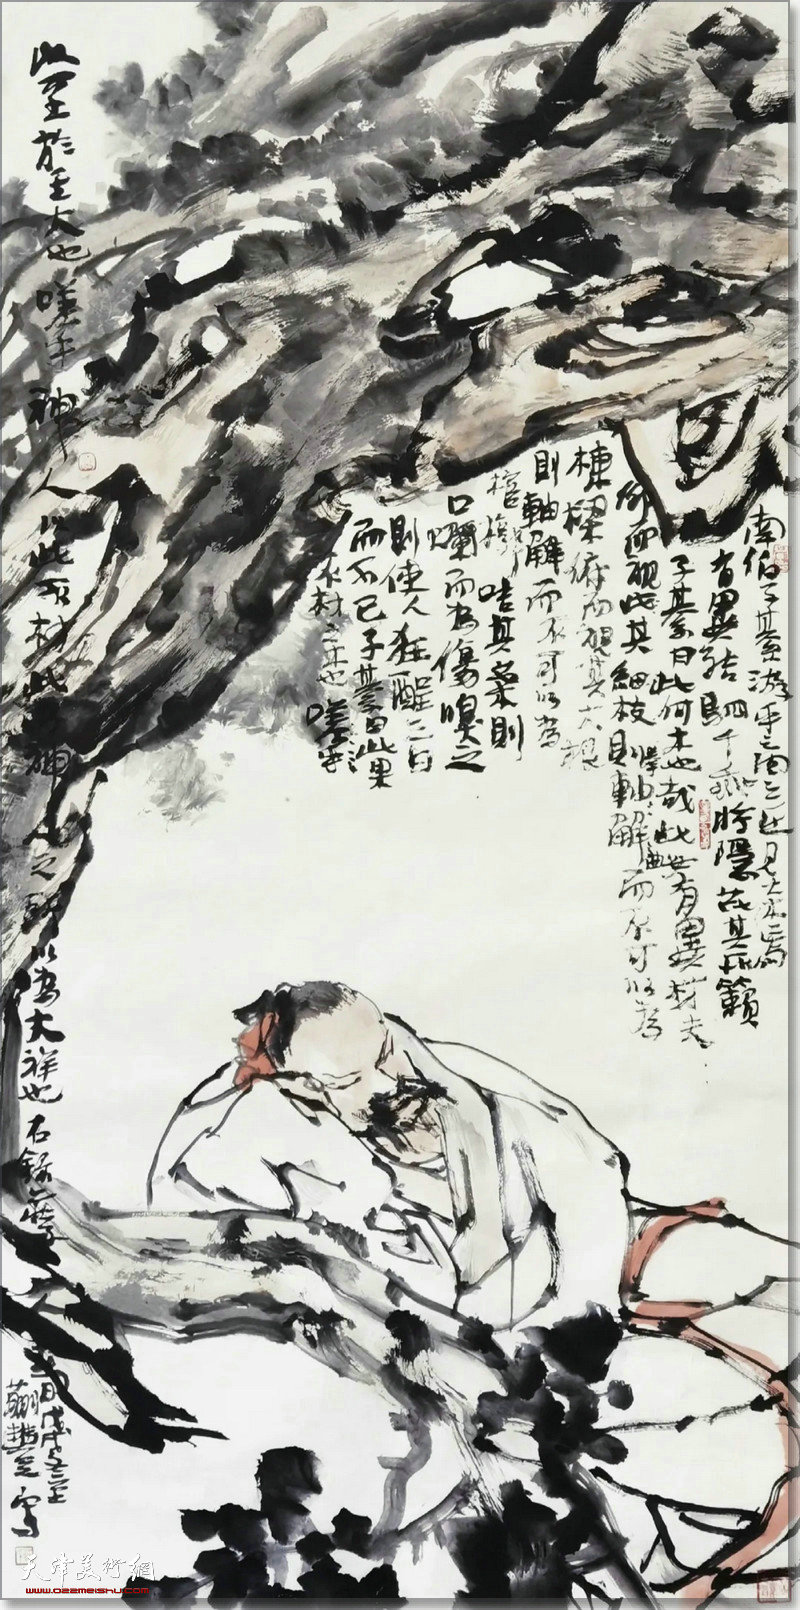 南伯子綦游乎之商之丘見大木焉
有異結駟千乘將隱芘其所籟
子綦曰此何木也哉此必有異材夫
仰而視其細枝則
軸解而不可以為
棟樑俯而視其大根
則軸解而不可以為
棺槨咶其葉則
口爛而為傷嗅之
則使人狂酲三日
而不已子綦曰此果
不材之木也嗟乎
此至於至大也嗟乎神人以此不材此神人之所以為大祥也 石錄莊子
戊戌冬至
寫
天津美術網
www.022meishu.com